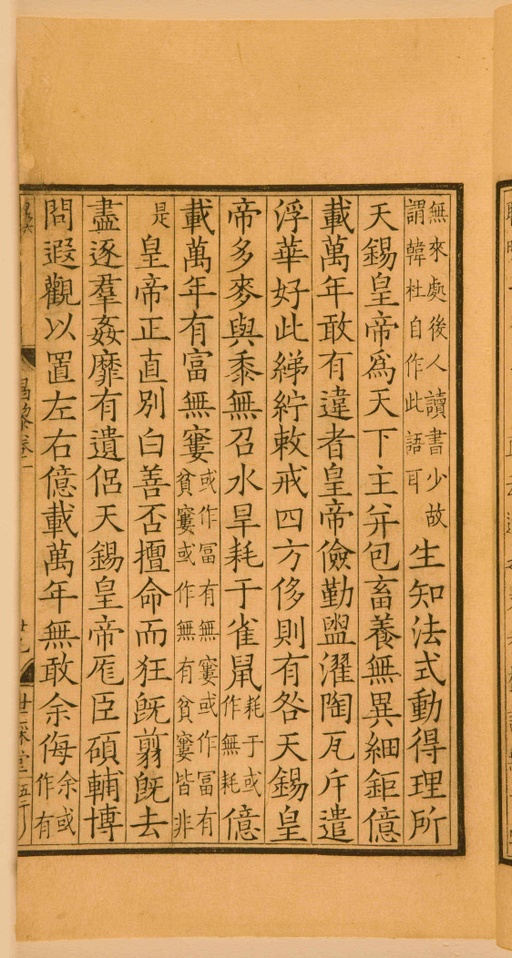 無來處後人讀書少故謂韓杜自作此語耳生知法式動得理所
天錫皇帝爲天下主并包畜養無異細鉅億
載萬年敢有違者皇帝儉勤盥濯陶瓦斥遣
浮華好此綈紵敕戒四方侈則有咎天錫皇
帝多麥與黍無召水旱耗于雀鼠耗于或作無耗億
載萬年有富無窶或作富有無窶或作富有貧窶或作無有貧窶皆非
是皇帝正直別白善否擅命而狂旣翦旣去
盡逐羣姦靡有遺侶天錫皇帝厖臣碩輔博
問遐觀以置左右億載萬年無敢余侮余或作有
昌黎卷一
世綵堂